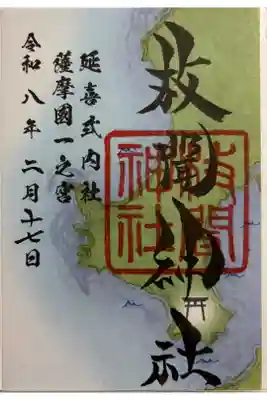 枚聞神社
枚聞神社
延喜式内社
薩摩國一之宮
令和八年二月十七日